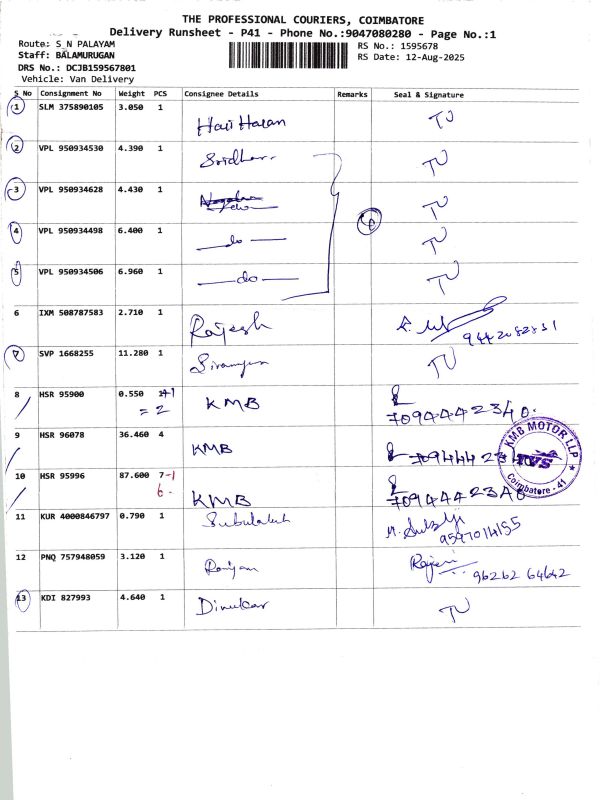 THE PROFESSIONAL COURIERS, COIMBATORE
Delivery Runsheet - P41 - Phone No.:9047080280 - Page No.:1
Route: S_N PALAYAM
Staff: BALAMURUGAN
DRS No.: DCJB159567801
Vehicle: Van Delivery
RS No.: 1595678
RS Date: 12-Aug-2025
S No Consignment No Weight PCS Consignee Details Remarks Seal & Signature
1 SLM 375890105 3.050 1 Hari Haran TU
2 VPL 950934530 4.390 1 Sridhar TU
3 VPL 950934628 4.430 1 do TU
4 VPL 950934498 6.400 1 do TU
5 VPL 950934506 6.960 1 do TU
6 IXM 508787583 2.710 1 Rajesh
7 SVP 1668255 11.280 1 TU
8 HSR 95900 0.550 KMB
= 2 7094442340
9 HSR 96078 36.460 4 KMB
10 HSR 95996 87.600 7-1
6 KMB
KMB MOTOR LLP
TVS
Coimbatore - 41
11 KUR 4000846797 0.790 1
12 PNQ 757948059 3.120 1
96262 64642
13 KDI 827993 4.640 1 Dinukar TU